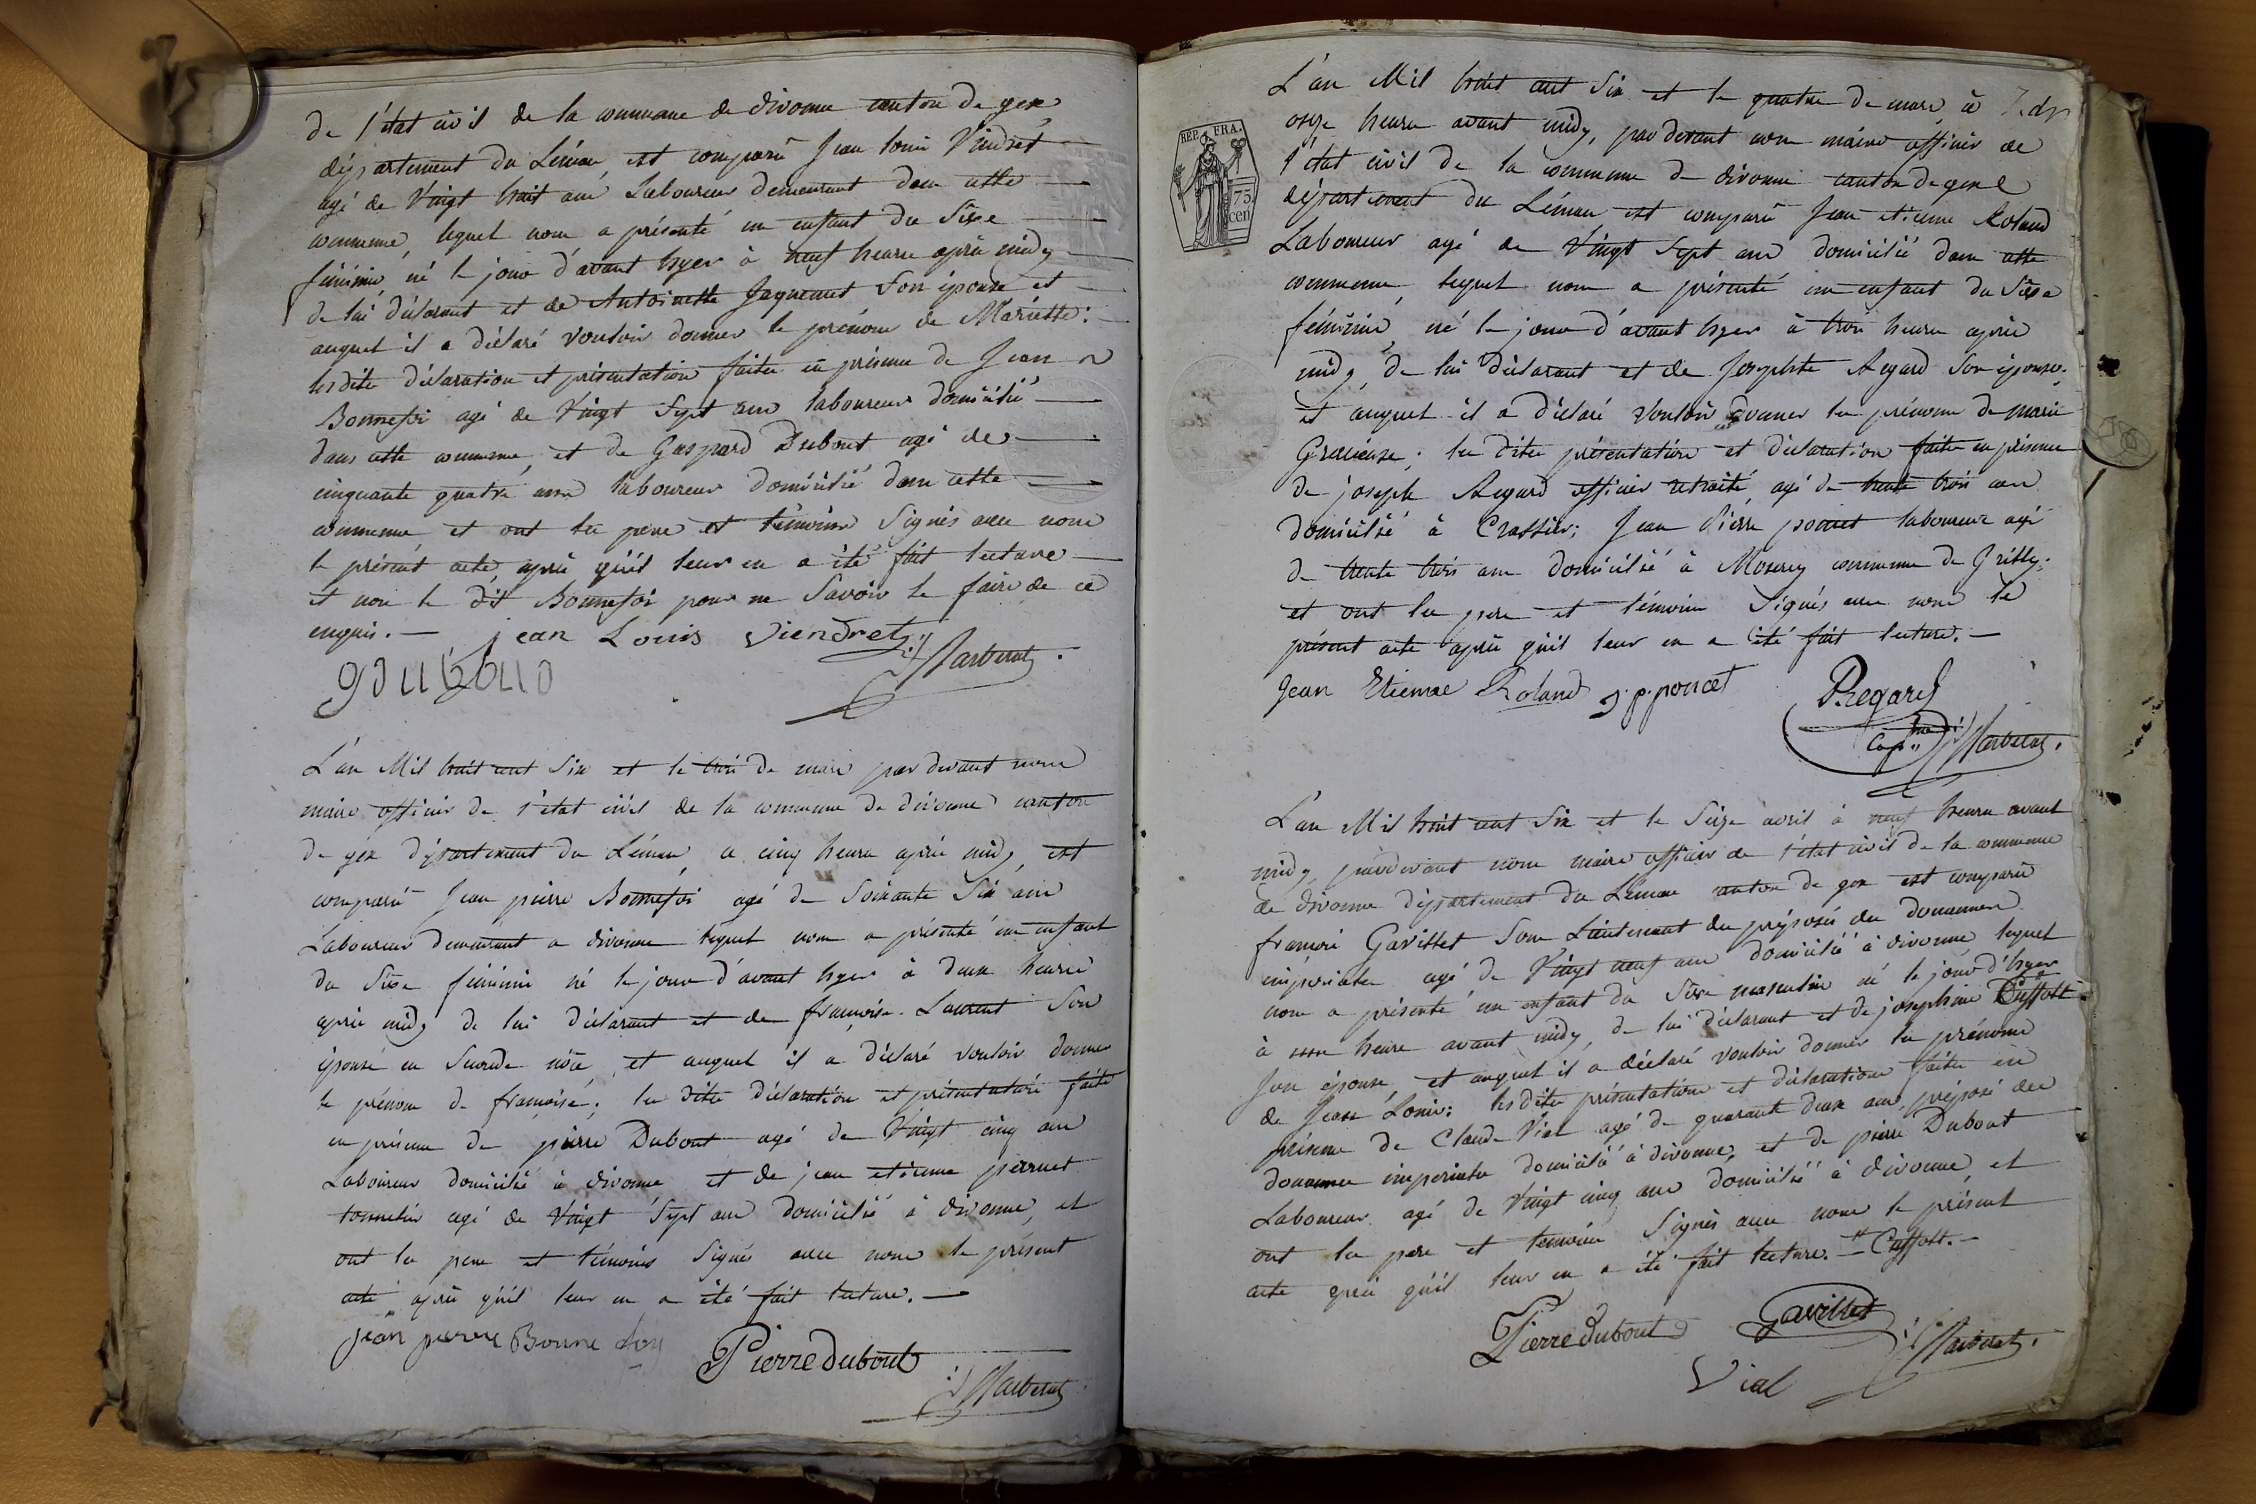 de l'état civil de la commune de divonne canton de gex
département du Léman, est comparu Jean louis Vindret
agé de Vingt huit ans Laboureur demeurant dans cette
commune, lequel nous a présenté un enfant du Sexe
féminin, né le jour d'avant hyer à neuf heures après midy
de lui déclarant et de Antoinette Jaquemet Son épouse et
auquel il a déclaré vouloir donner le prénom de Mariette:
les dite déclaration et présentation faites en présence de Jean
Bonnefoi agé de Vingt Sept ans laboureur domicilié
dans cette commune, et de Gaspard Dubout agé de
cinquante quatre ans laboureur domicilié dans cette
commune et ont les pere et témoins Signés avec nous
le présent acte, après qu'il leur en a été fait lecture
et non le dit Bonnefoi pour ne Savoir le faire de ce
enquis. —
jean Louis Viendret
L'an Mil huit cent Six et le trois de mars par devant nous
maire officier de l'état civil de la commune de divonne canton
de gex département du Léman, a cinq heures après midy, est
comparu Jean pierre Bonnefoi agé de Soixante Six ans
Laboureur demeurant a divonne lequel nous a présenté un enfant
du Sexe féminin né le jour d'avant hyer à deux heures
après midy de lui déclarant et de françoise Laurent Son
épouse en Seconde noce, et auquel il a déclaré vouloir donner
le prénom de françoise; les dites déclaration et présentation faites
en présence de pierre Dubout agé de Vingt cinq ans
Laboureur domicilié à divonne et de jean etienne perruet
tonnelier agé de Vingt Sept ans domicilié à divonne, et
ont les pere et témoins Signés avec nous le présent
acte après qu'il leur en a été fait lecture. —
jean pierre Bonne foy Pierre dubout
L'an Mil huit cent Six et le quatre de mars à
onze heures avant midy, par devant nous maire officier de
l'état civil de la commune de divonne canton de gex
REP. FRA.
75
cen
département du Léman est comparu Jean etienne Roland
Laboureur agé de Vingt Sept ans domicilié dans cette
commune, lequel nous a présenté un enfant du Sexe
féminin, né le jour d'avant hyer à trois heures après
midy, de lui déclarant et de Josephte Regard Son épouse.
et auquel il a déclaré vouloir donner les prénoms de marie
Gracieuse; les dites présentation et déclaration faites en présence
de joseph Regard officier retraité, agé de trente trois ans
domicilié à Crassier; Jean Pierre poncet laboureur agé
de trente trois ans domicilié à Mourex commune de Grilly;
et ont les pere et témoins Signés avec nous le
présent acte après qu'il leur en a été fait lecture. —
Jean Etienne Roland j. p. poncet Regard
L'an Mil huit cent Six et le Seize avril à neuf heures avant
midy, pardevant nous maire officier de l'état civil de la commune
de divonne département du Léman canton de gex est comparu
francois Gavillet Sous Lieutenant des préposés des douannes
impériales agé de Vingt neuf ans domicilié à divonne lequel
nous a présenté un enfant du Sexe masculin né le jour d'hyer
à onze heures avant midy, de lui déclarant et de josephine
Son épouse, et auquel il a déclaré vouloir donner les prénoms
de Jean Louis: les dites présentation et déclaration faites en
présence de Claude Vial agé de quarante deux ans, préposé des
douannes impériales domicilié à divonne, et de pierre Dubout
Laboureur agé de Vingt cinq ans domicilié à divonne, et
ont les pere et temoins Signés avec nous le présent
acte après qu'il leur en a été fait lecture. —
Pierre dubout Gavillet
Vial